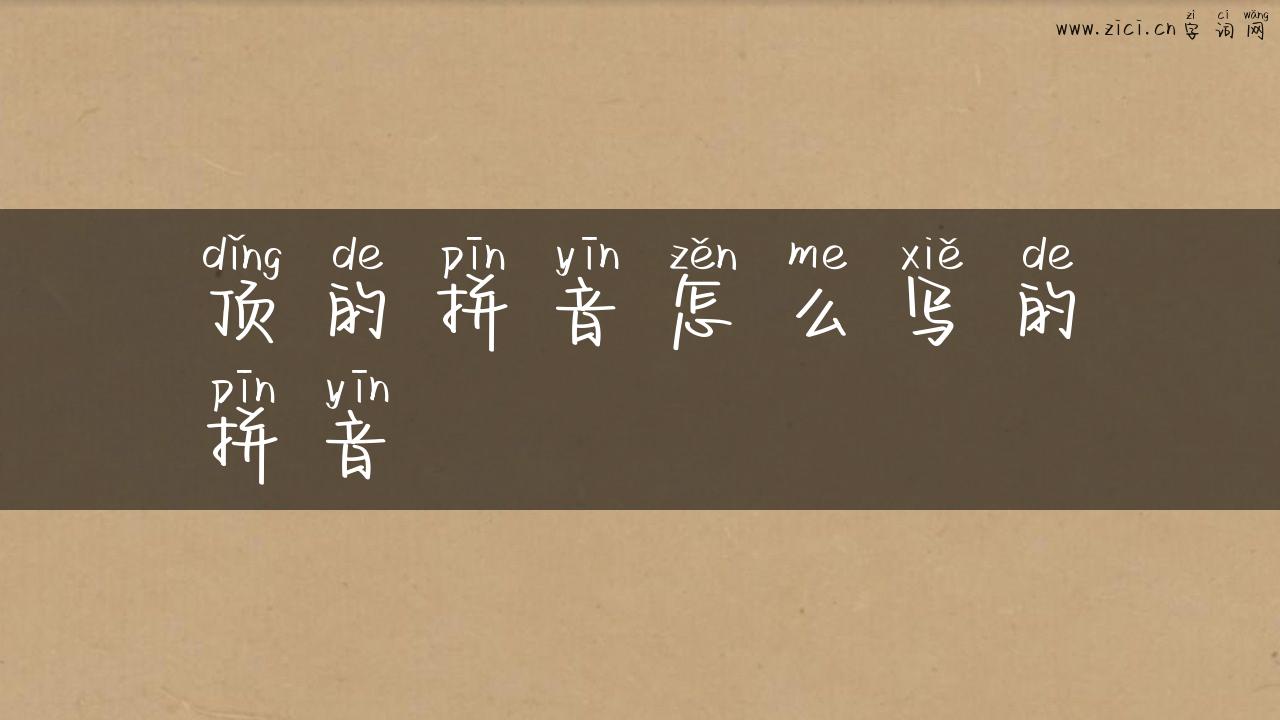 zì cí wǎng
www.zici.cn 字 词 网
dǐng de pīn yīn zěn me xiě de
顶 的 拼 音 怎 么 写 的
pīn yīn
拼 音